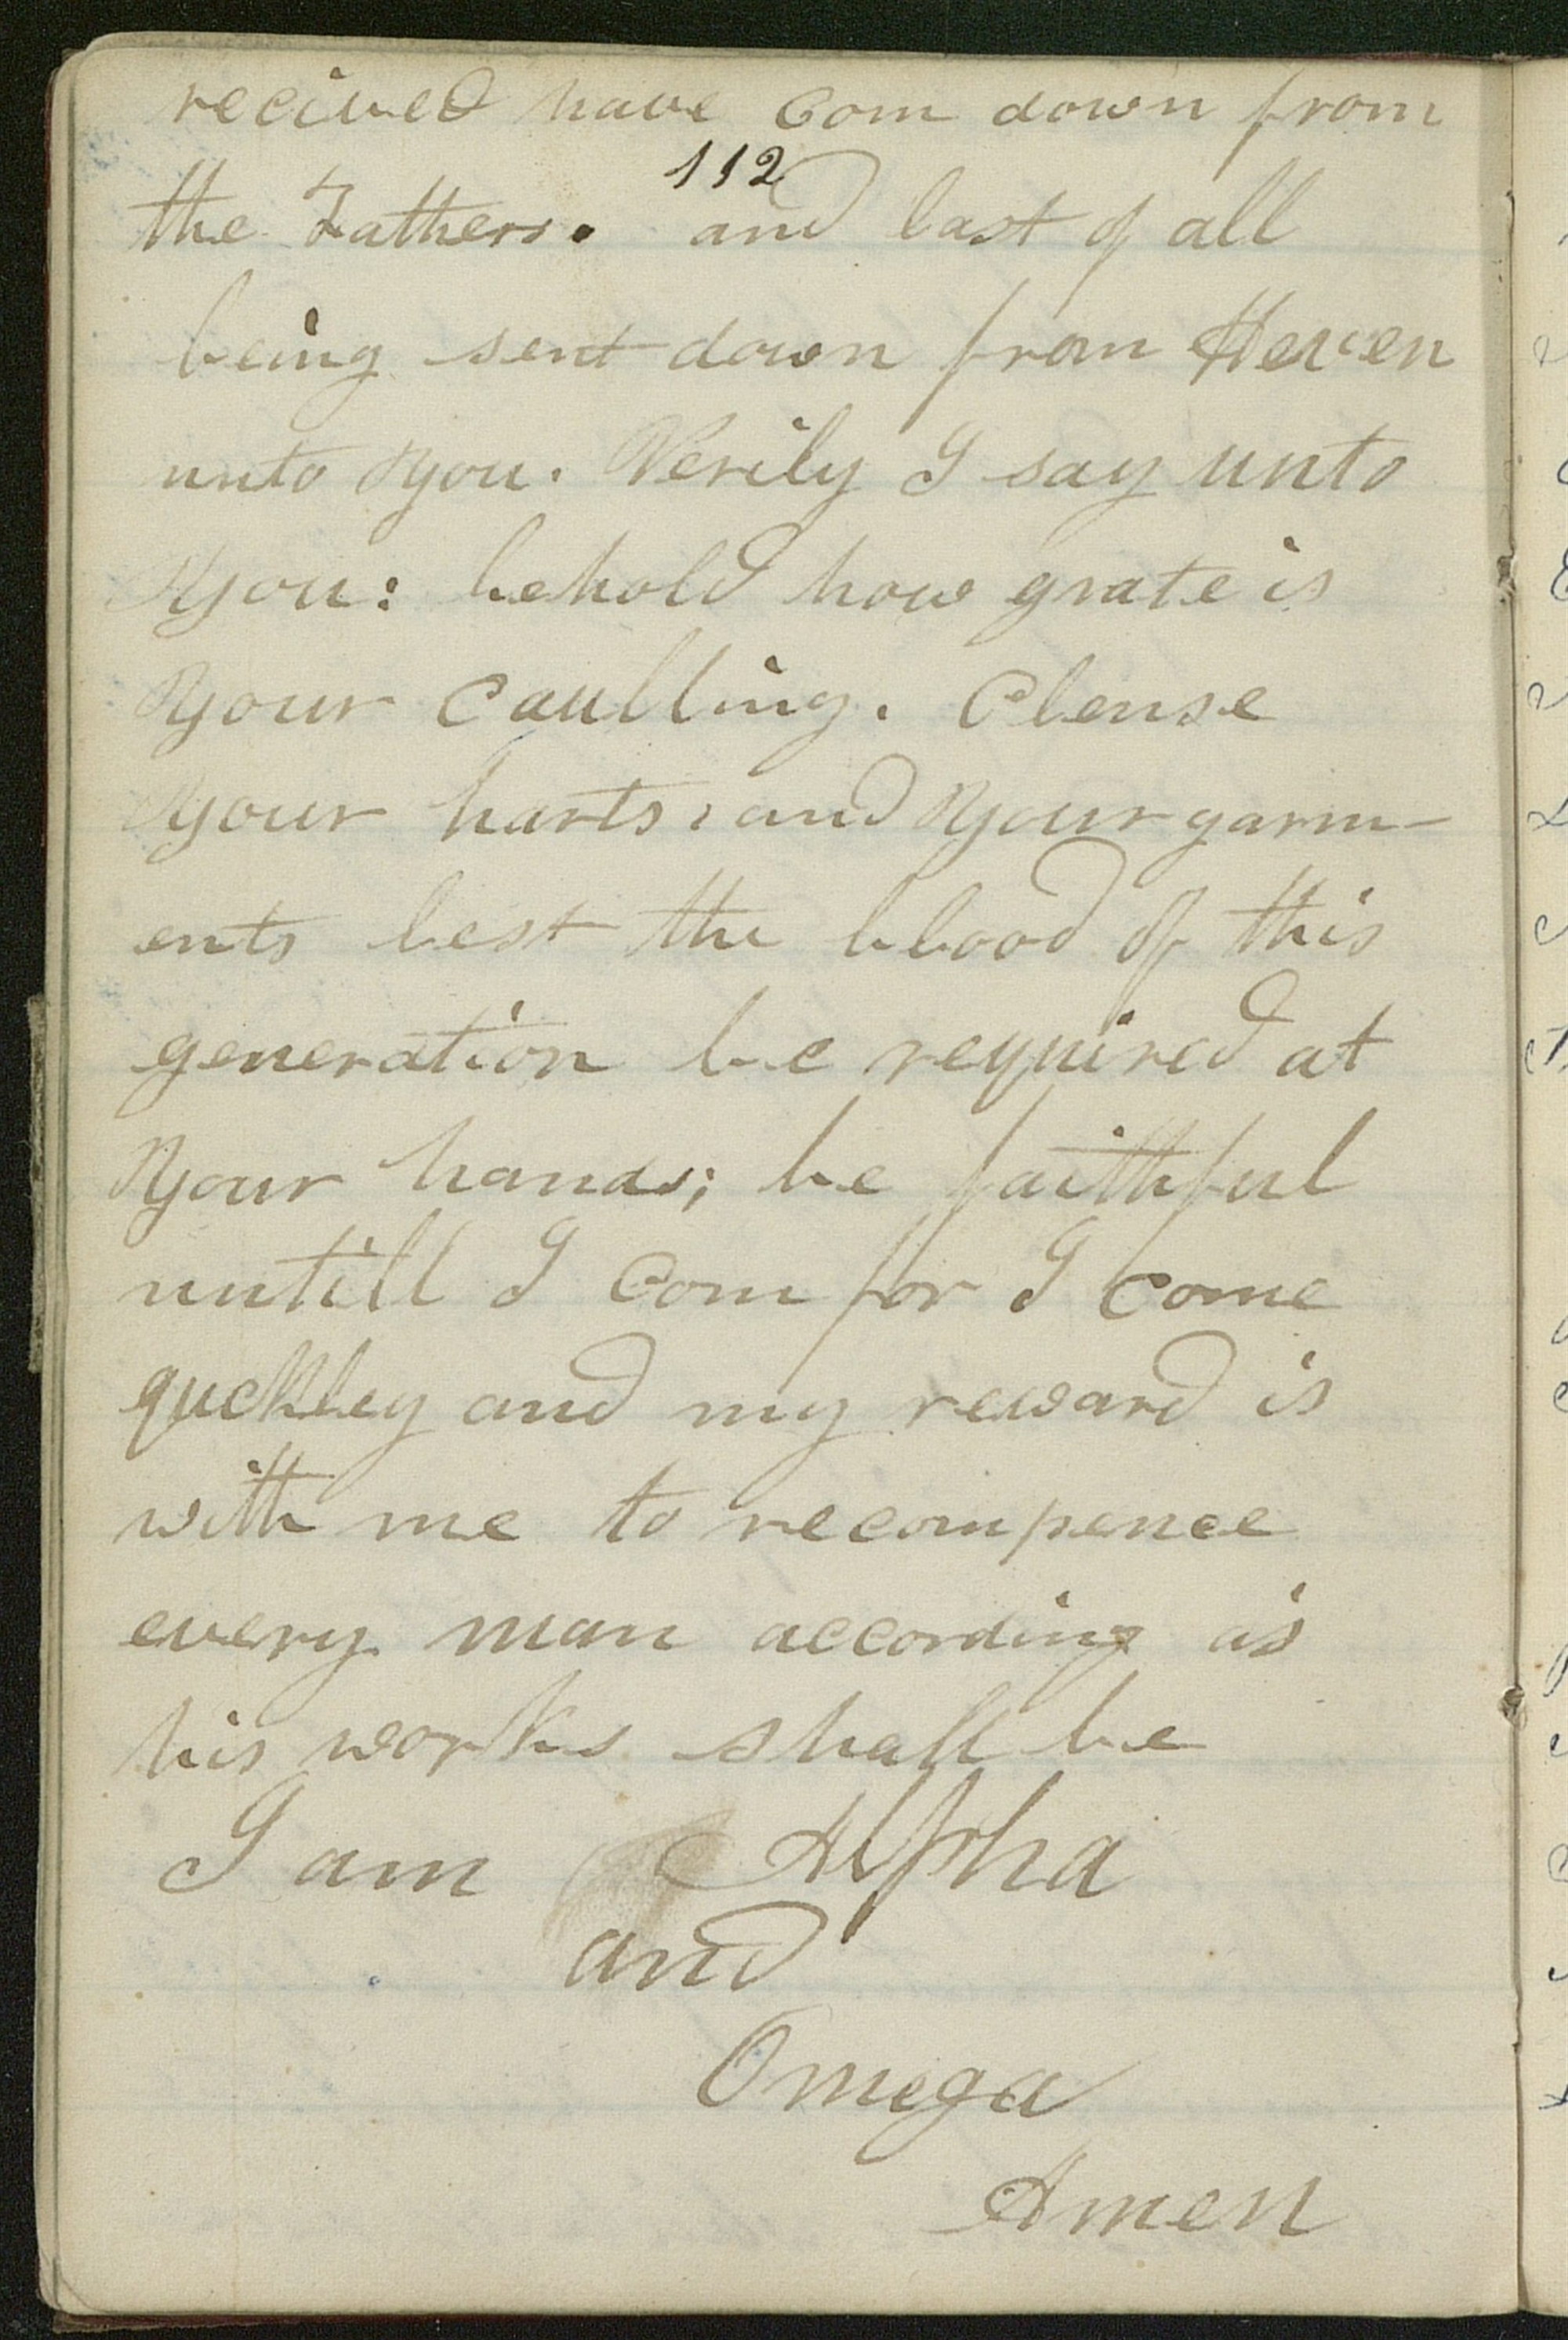 recived have com down from
112
the Fathers. and last of all
being sent down from Heven
unto you. Verily I say unto
you: behold how grate is
your caulling. Clense
your harts, and your garm-
ents lest the blood of this
generation be required at
your hands; be faithful
untill I com for I come
quckley and my reward is
with me to recompence
every man according as
his works shall be
I am Alpha
and
Omega
Amen